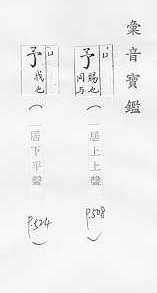 彙音寶鑑
予 賜也 同与
(一居上上聲 P.508)
予 我也
(一居下平聲 P.524)